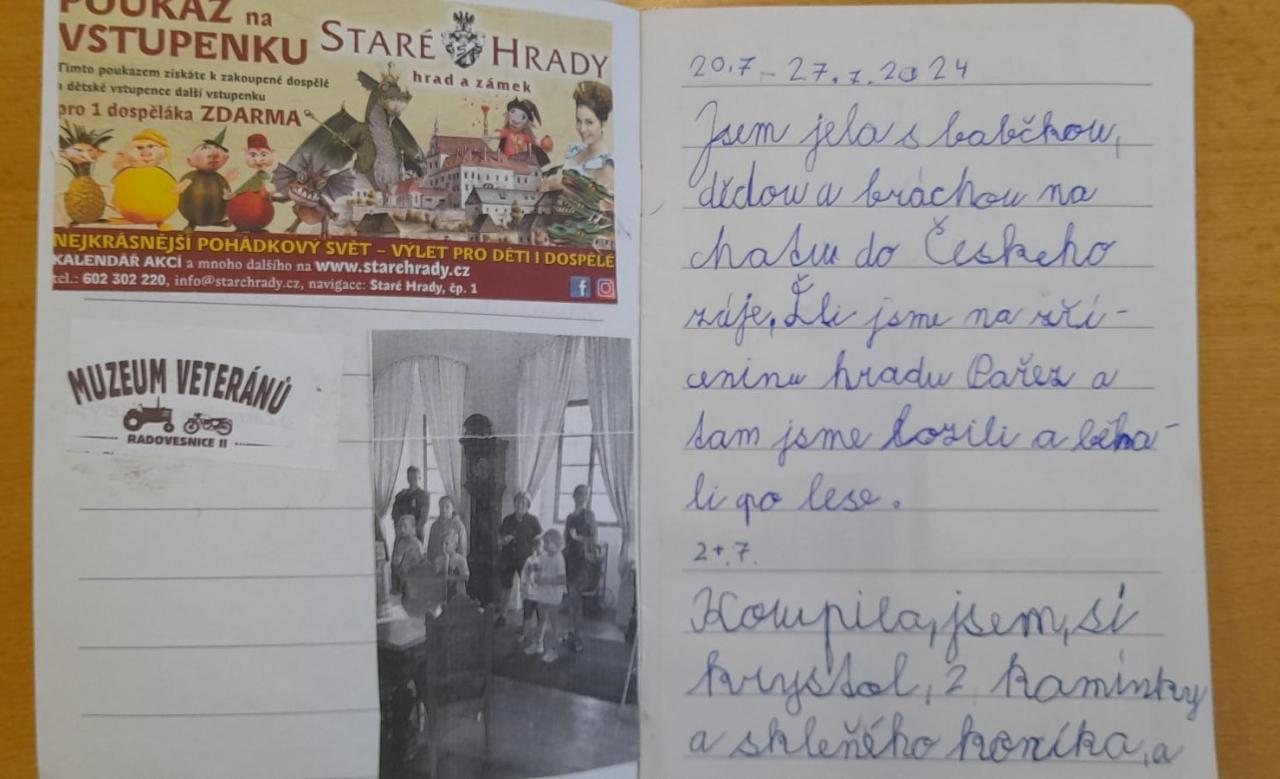 POUKAZ na
VSTUPENKU
STARÉ HRADY
hrad a zámek
Tímto poukazem získáte k zakoupené dospělé
a dětské vstupence další vstupenku
pro 1 dospěláka ZDARMA
NEJKRÁSNĚJŠÍ POHÁDKOVÝ SVĚT – VÝLET PRO DĚTI I DOSPĚLÉ
KALENDÁŘ AKCÍ a mnoho dalšího na www.starehrady.cz
tel.: 602 302 220, info@starehrady.cz, navigace: Staré Hrady, čp. 1
MUZEUM VETERÁNŮ
RADOVESNICE II
20.7 - 27.7.2024
Jsem jela s babčkou,
dědou a bráchou na
chatu do Českeho
ráje. Šli jsme na zří-
ceninu hradu Pařez a
tam jsme lozili a běha-
li po lese.
2+.7.
Koupila, jsem, si
krystal, 2 kamínky
a skleňěho koníka, a